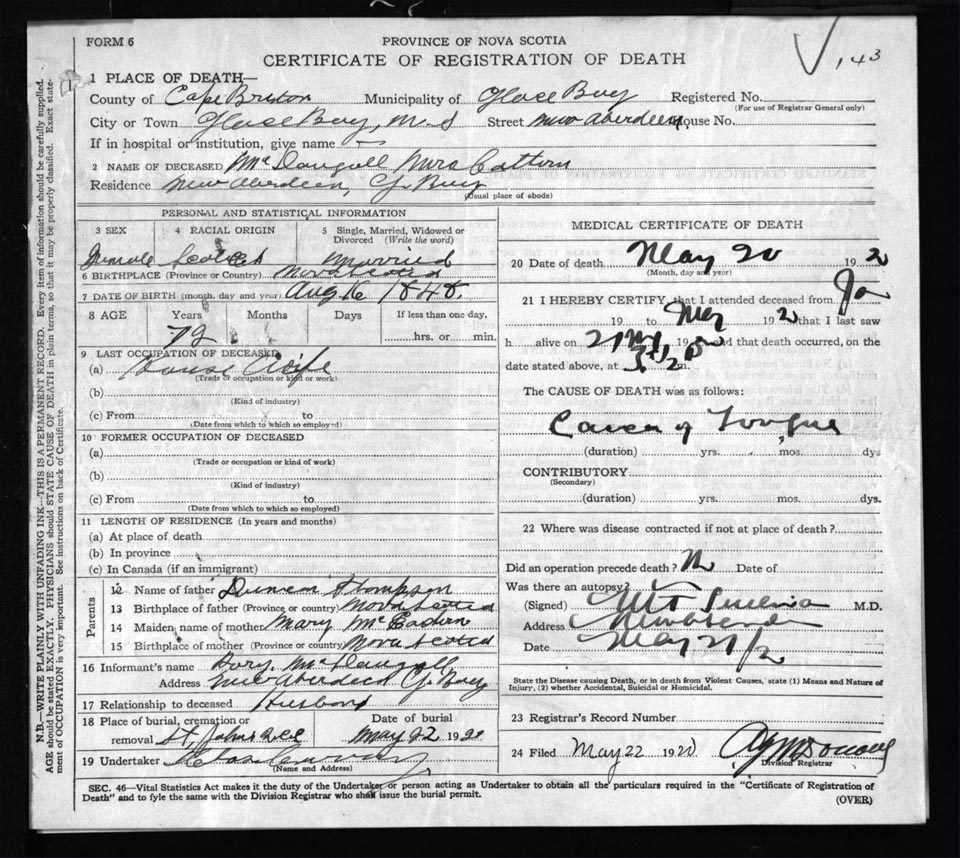 FORM 6
PROVINCE OF NOVA SCOTIA
CERTIFICATE OF REGISTRATION OF DEATH
143
N.B.—WRITE PLAINLY WITH UNFADING INK—THIS IS A PERMANENT RECORD. Every item of information should be carefully supplied.
AGE should be stated EXACTLY. PHYSICIANS should STATE CAUSE OF DEATH in plain terms, so that it may be properly classified. Exact state-
ment of OCCUPATION is very important. See instructions on back of Certificate.
1 PLACE OF DEATH—
County of Cape Breton Municipality of Glace Bay Registered No.
(For use of Registrar General only)
City or Town Glace Bay, N.S Street New Aberdeen House No.
If in hospital or institution, give name —
2 NAME OF DECEASED McDougall Mrs
Residence New Aberdeen, G. Bay
(Usual place of abode)
PERSONAL AND STATISTICAL INFORMATION
3 SEX 4 RACIAL ORIGIN 5 Single, Married, Widowed or Divorced (Write the word)
Female Scotch Married
6 BIRTHPLACE (Province or Country) Nova Scotia
7 DATE OF BIRTH (month, day and year) Aug 16 1848.
8 AGE Years Months Days If less than one day,
72 hrs. or min.
9 LAST OCCUPATION OF DECEASED
(a) House Wife
(Trade or occupation or kind or work)
(b)
(Kind of industry)
(c) From to
(Date from which to which so employed)
10 FORMER OCCUPATION OF DECEASED
(a)
(Trade or occupation or kind of work)
(b)
(Kind of industry)
(c) From to
(Date from which to which so employed)
11 LENGTH OF RESIDENCE (In years and months)
(a) At place of death
(b) In province
(c) In Canada (if an immigrant)
Parents
12 Name of father Duncan Thompson
13 Birthplace of father (Province or country) Nova Scotia
14 Maiden name of mother Mary Mc
15 Birthplace of mother (Province or country) Nova Scotia
16 Informant's name McDougall
Address New Aberdeen G. Bay
17 Relationship to deceased Husband
18 Place of burial, cremation or removal St, Johns Date of burial May 22 1920
19 Undertaker
(Name and Address)
MEDICAL CERTIFICATE OF DEATH
20 Date of death May 20 1920
(Month, day and year)
21 I HEREBY CERTIFY, that I attended deceased from Jan
19 to May 1920 that I last saw
h alive on 19 and that death occurred, on the
date stated above, at m.
The CAUSE OF DEATH was as follows:
Cancer of Tongue
(duration) yrs. mos. dys
CONTRIBUTORY
(Secondary)
(duration) yrs. mos. dys.
22 Where was disease contracted if not at place of death?
Did an operation precede death? No Date of
Was there an autopsy?
(Signed) M.D.
Address
Date May 21/20
State the Disease causing Death, or in death from Violent Causes, state (1) Means and Nature of
Injury, (2) whether Accidental, Suicidal or Homicidal.
23 Registrar's Record Number
24 Filed May 22 1920
Division Registrar
SEC. 46—Vital Statistics Act makes it the duty of the Undertaker or person acting as Undertaker to obtain all the particulars required in the "Certificate of Registration of
Death" and to fyle the same with the Division Registrar who shall issue the burial permit.
(OVER)